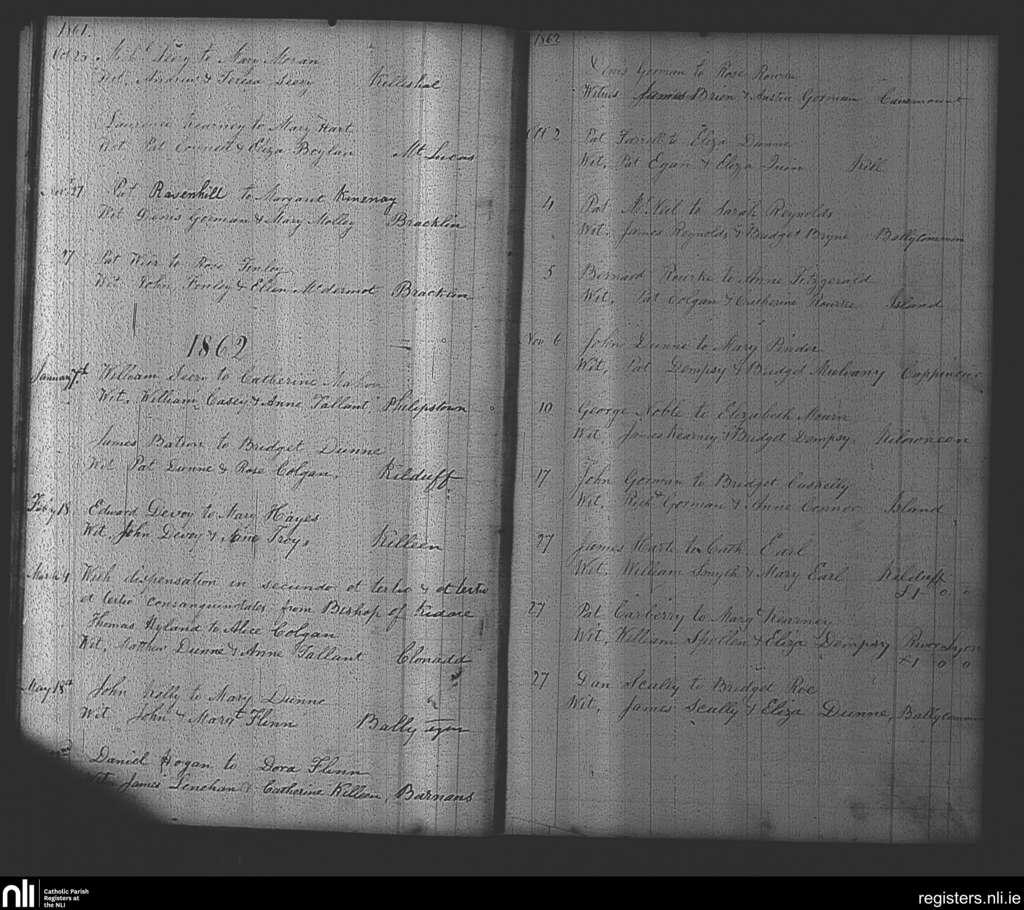 1861.
Oct 23 Michl Leery to Mary Moran
Wit. Andrew & Teresa Leery Killeshal
Laurence Kearney to Mary Hart
Wit Pat Connell & Eliza Boylan Mt Lucas
27 Pat Ravenhill to Margaret Kinenay
Wit Denis Gorman & Mary Molley Bracklin
27 Pat Weir to Rose Finley
Wit John Finley & Ellen McDermot Bracklin
1862
January 7th William to Catherine Mahon
Wit, William Casey & Anne Tallant Philipstown
James Batson to Bridget Dunne
Wit Pat Dunne & Rose Colgan, Kilduff
Feby 18 Edward Devoy to Mary Hayes
Wit, John Devoy & Troy, Killeen
March 4 With dispensation in secundo et tertio & et tertio
et tertio consanguinitates from Bishop of Kidare
Thomas Hyland to Alice Colgan
Wit, Matthew Dunne & Anne Tallant Clonadd
May 18th John Kelly to Mary Dunne
Wit John & Margt Flinn Bally
Daniel Hogan to Dora Flinn
James Lenehan & Catherine Killeen, Barnans
1862
Denis Gorman to Rose Rourke
Witness James Brien & Austin Gorman
Oct 2 Pat Farrell to Eliza Dunne
Wit, Pat Egan & Eliza Quin Kill
4 Pat McNeil to Sarah Reynolds
Wit, James Reynolds & Bridget Bryne Ballycommon
5 Bernard Rourke to Anne Fitzgerald
Wit, Pat Colgan & Catherine Rourke Island
Nov 6 John Dunne to Mary Pinder
Wit, Pat Dempsy & Bridget Mulvany Cappincur
10 George Noble to Elizabeth Mourn
Wit James Kearney & Bridget Dempsy Kilowneen
17 John Gorman to Bridget Cuskelly
Wit, Richd Gorman & Anne Connor Island
27 James Harte to Cath. Earl
Wit, William Smyth & Mary Earl Kilduff
£1 0 0
27 Pat Carberry to Mary Kearney
Wit, William Spollen & Eliza Dempsy River Lyon
£1 0 0
27 Dan Scally to Bridget Roe
Wit, James Scally & Eliza Dunne, Ballycommon
nli
Catholic Parish
Registers at
the NLI
registers.nli.ie